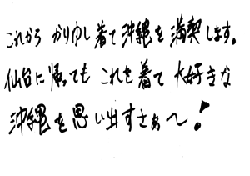 これから かりゆし着て沖縄を満喫します。
仙台に帰っても これを着て 大好きな
沖縄を思い出すさぁ〜!